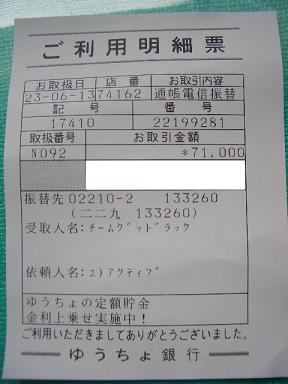 ご利用明細票
お取扱日 店番 お取引内容
23-06-13 74162 通帳電信振替
記号 番号
17410 22199281
取扱番号 お取引金額
N092 *71,000
振替先 02210-2 133260
(二二九 133260)
受取人名:ﾁｰﾑｸﾞｯﾄﾞﾗｯｸ
依頼人名:ﾕ)ｱｸﾃｨﾌﾞ
ゆうちょの定額貯金
金利上乗せ実施中!
ご利用いただきましてありがとうございました。
ゆうちょ銀行